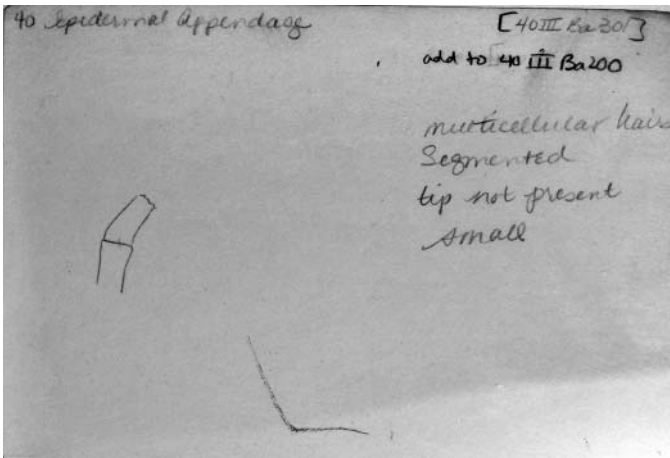 40 Iepidermal Appendage
[40 III Ba 301]
add to 40 III Ba200
multicellular hairs
Segmented
tip not present
small